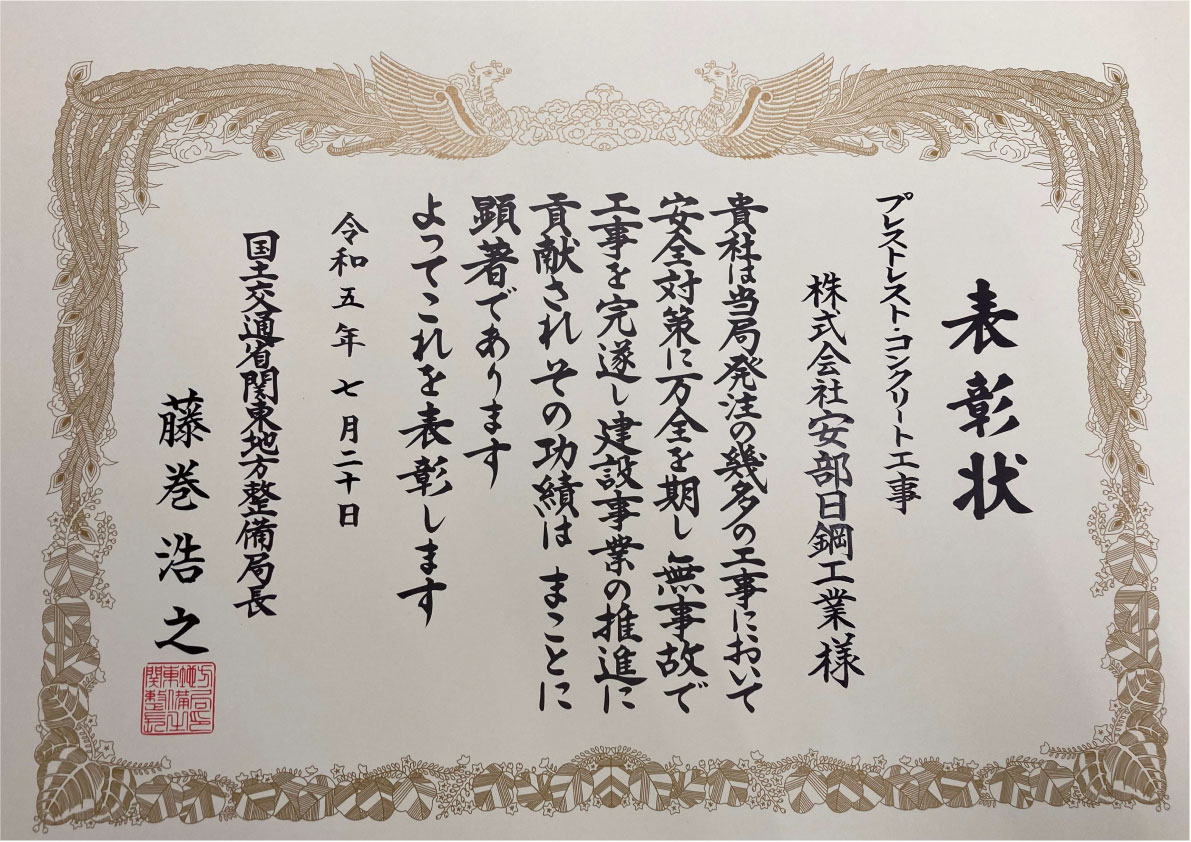 表彰状
プレストレスト・コンクリート工事
株式会社安部日鋼工業様
貴社は当局発注の幾多の工事において
安全対策に万全を期し 無事故で
工事を完遂し建設事業の推進に
貢献されその功績は まことに
顕著であります
よってこれを表彰します
令和五年七月二十日
国土交通省関東地方整備局長
藤巻浩之